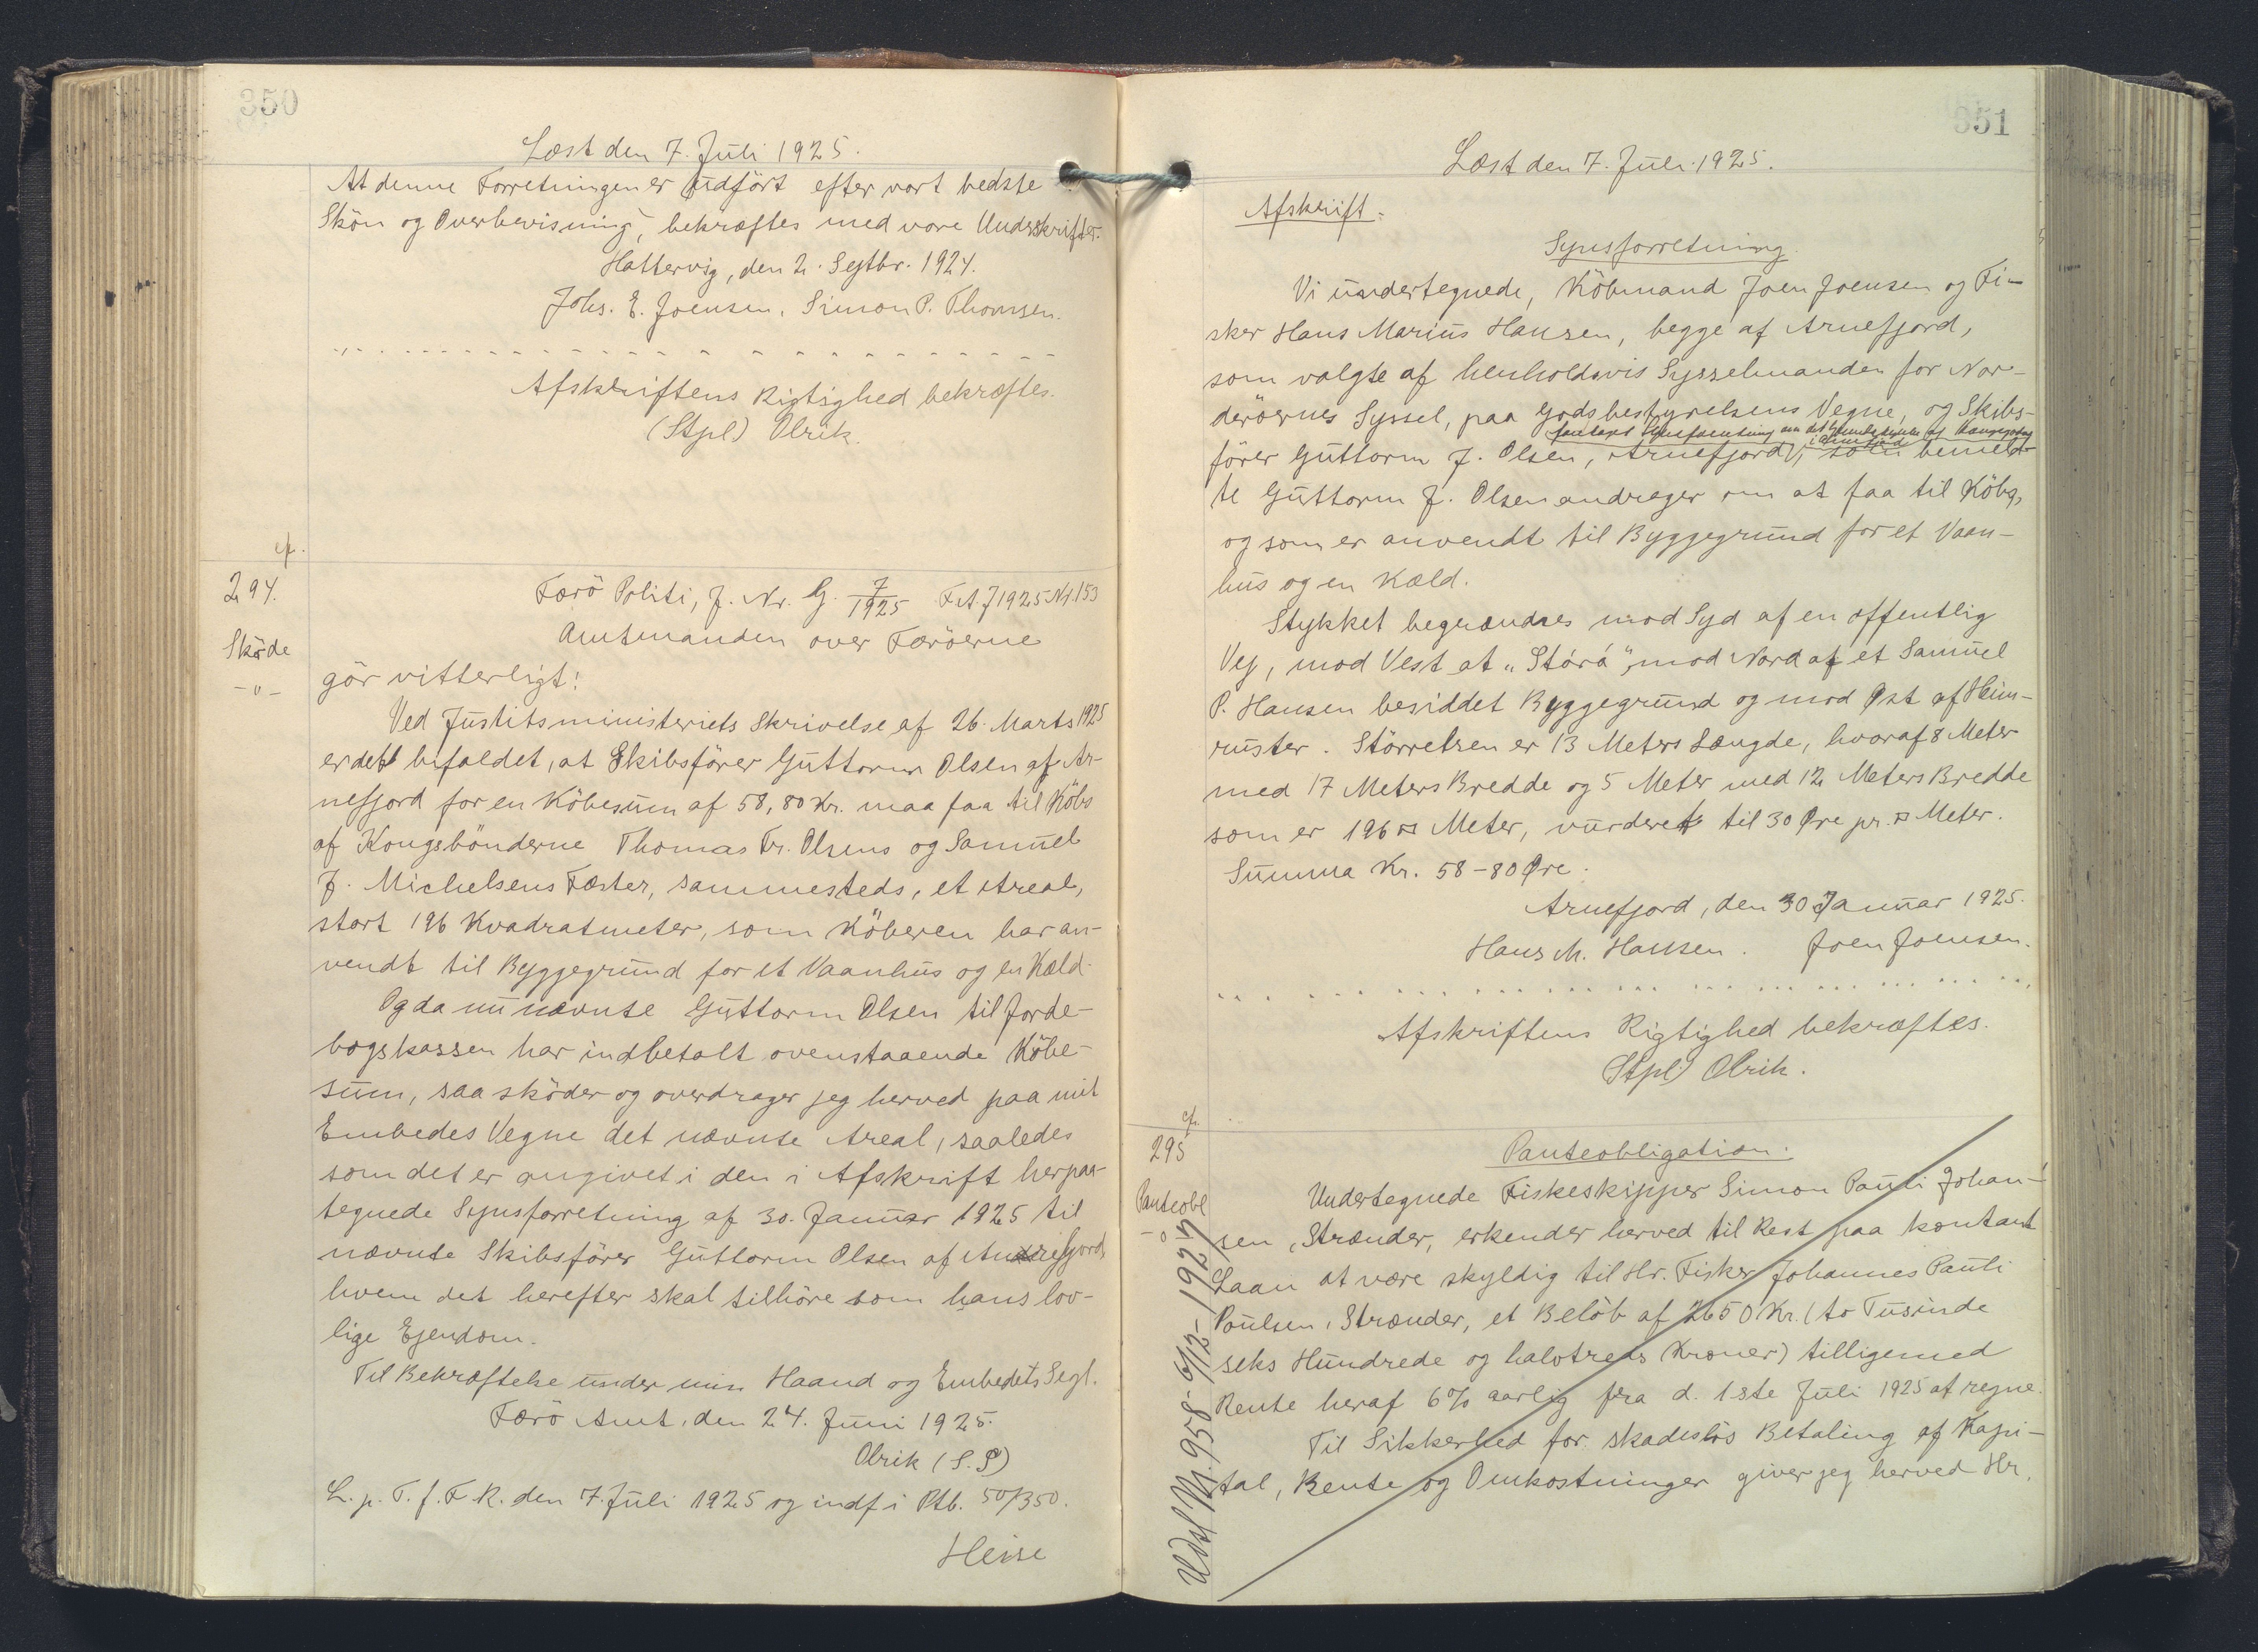 350
Læst den 7. Juli 1925.
At denne Forretningen er udført efter vort bedste
Skön og Overbevisning, bekræftes med vore Underskrifter.
Hattervig, den 2. Septbr. 1924.
Johs. E. Joensen. Simon P. Thomsen.
Afskriftens Rigtighed bekræftes.
(Stpl) Olrik.
cf.
294.
Sköde
-"-
Færö Politi, J. Nr. G. 7/1925 F.A. J 1925 Nr. 153
Amtmanden over Færöerne
gör vitterligt:
Ved Justitsministeriets Skrivelse af 26. Marts 1925
er det bifaldet, at Skibsförer Guttorm Olsen af Ar-
nefjord for en Köbesum af 58,80 Kr. maa faa til Köbs
af Kongsbönderne Thomas Fr. Olsens og Samuel
J. Michelsens Fæster, sammesteds, et Areal,
stort 196 Kvadratmeter, som Köberen har an-
vendt til Byggegrund for et Vaanhus og en Kæld.
Og da nu nævnte Guttorm Olsen til Jorde-
bogskassen har indbetalt ovenstaaende Köbe-
sum, saa sköder og overdrager jeg herved paa mit
Embedes Vegne det nævnte Areal, saaledes
som det er angivet i den i Afskrift herpaa-
tegnede Synsforretning af 30. Januar 1925 til
nævnte Skibsförer Guttorm Olsen af Arnefjord,
hvem det herefter skal tilhöre som hans lov-
lige Ejendom.
Til Bekræftelse under min Haand og Embedets Segl.
Færö Amt, den 24. Juni 1925.
Olrik (S. P)
L. p. T. f. F. R. den 7. Juli 1925 og indf i Ptb. 50/350.
Heise
351
Læst den 7. Juli 1925.
Afskrift.
Synsforretning.
Vi undertegnede, Köbmand Joen Joensen og Fi-
sker Hans Marius Hansen, begge af Arnefjord,
som valgte af henholdsvis Sysselmanden for Nor-
deröernes Syssel, paa Godsbestyrelsens Vegne, og Skibs-
foretaget Synsforretning om det Grundstykke af Kongsjord
i Arnefjord
förer Guttorm J. Olsen, Arnefjord, som bemeld-
te Guttorm J. Olsen andrager om at faa til Köbs,
og som er anvendt til Byggegrund for et Vaan-
hus og en Kæld.
Stykket begrændses mod Syd af en offentlig
Vej, mod Vest at "Stórá", mod Nord af et Samuel
P. Hansen besiddet Byggegrund og mod Øst af Heim-
ruster. Störrelsen er 13 Meters Længde, hvoraf 8 Meter
med 17 Meters Bredde og 5 Meter med 12 Meters Bredde
som er 196 □ Meter, vurderet til 30 Øre pr. □ Meter.
Summa Kr. 58-80 Øre.
Arnefjord, den 30 Januar 1925.
Hans M. Hansen. Joen Joensen.
Afskriftens Rigtighed bekræftes.
Stpl) Olrik.
cf.
295
Panteobl
-"-
Udsl Nr. 958-9/12-1927
Panteobligation.
Undertegnede Fiskeskipper Simon Pauli Johan-
sen, Strænder, erkender herved til Rest paa kontant
Laan at være skyldig til Hr. Fisker Johannes Pauli
Poulsen, Strænder, et Belöb af 2650 Kr. (to Tusinde
seks Hundrede og halvtreds Kroner) tilligemed
Rente heraf 6% aarlig fra d. 1ste Juli 1925 at regne.
Til Sikkerhed for skadeslös Betaling af Kapi-
tal, Rente og Omkostninger giver jeg herved Hr.